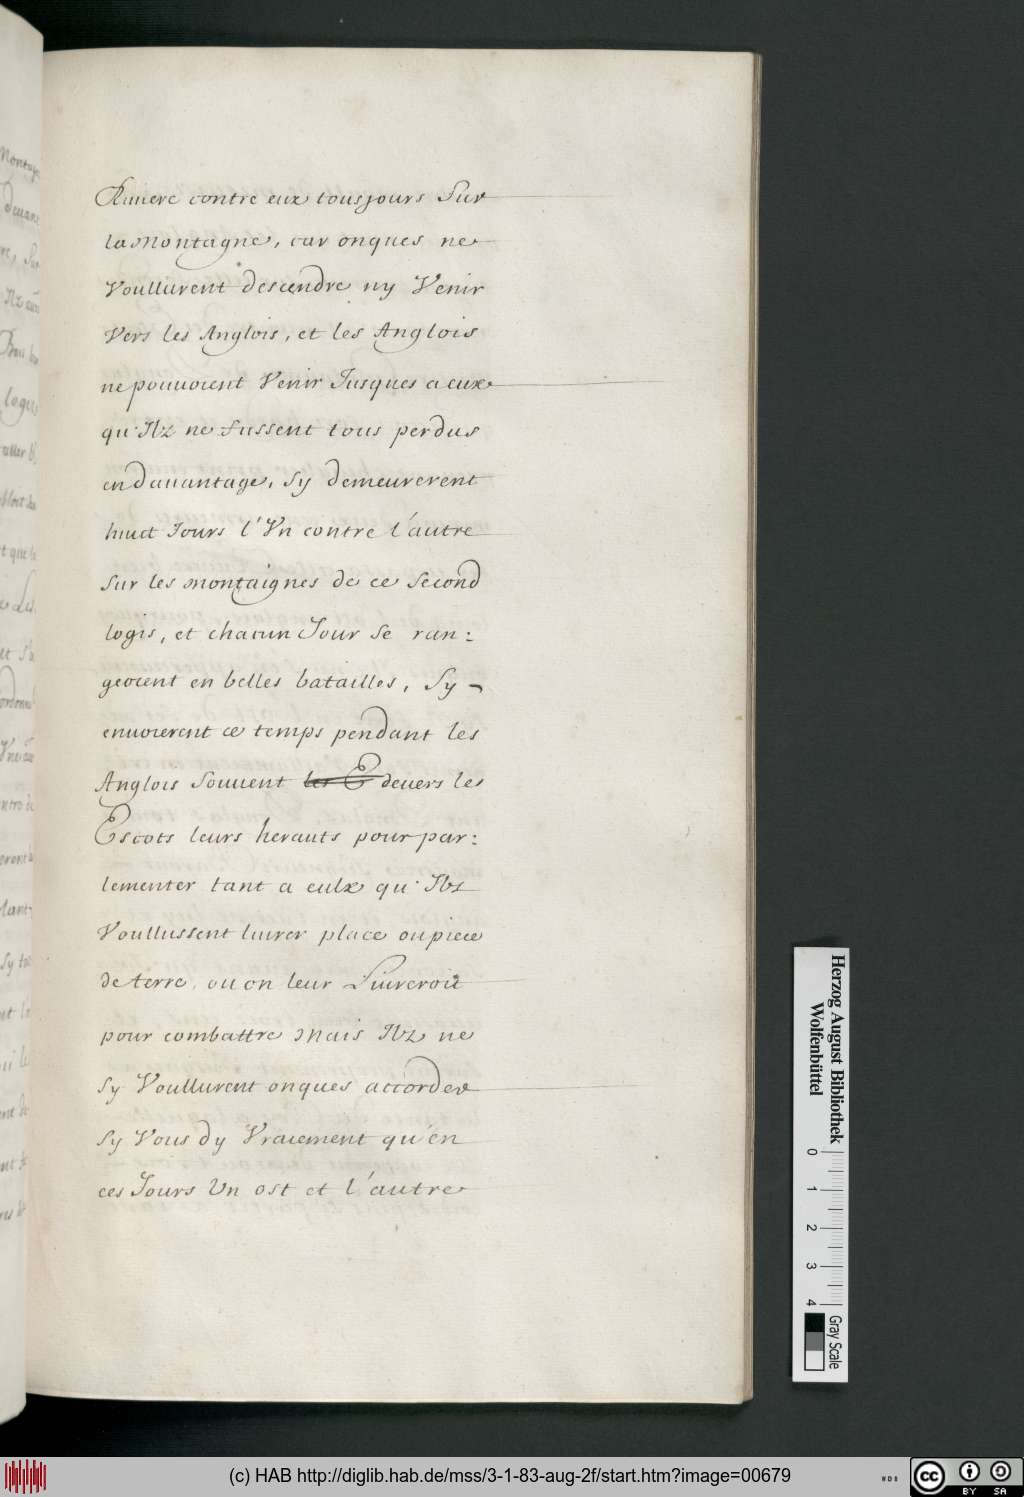 Riuiere contre eux tousjours Sur
la Montagne, car onques ne
Voullurent descendre ny Venir
Vers les Anglois, et les Anglois
ne pouuoient Venir Jusques a eux
qu'Ilz ne fussent tous perdus
en dauantage, Sy demeurerent
huict Jours l'Vn contre l'autre
sur les montaignes de ce second
logis, et chacun Jour Se ran:
geoient en belles batailles, Sy
enuoierent ce temps pendant les
Anglois Souuent les E deuers les
Escots leurs herauts pour par:
lementer tant a eulx qu'Ilz
Voullussent liurer place ou piece
de terre, ou on leur Liureroit
pour combattre Mais Ilz ne
Sy Voullurent onques accorder
Sy Vous dy Vraiement qu'en
ces Jours Un ost et l'autre
Herzog August Bibliothek
Wolfenbüttel
0 1 2 3 4
Gray Scale
(c) HAB http://diglib.hab.de/mss/3-1-83-aug-2f/start.htm?image=00679
cc BY SA